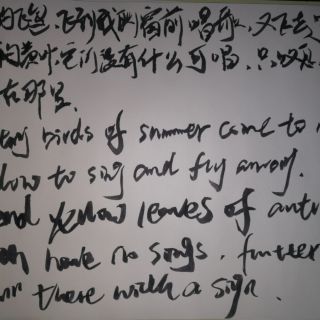 的飞鸟,飞到我的窗前唱歌,又飞去
的黄叶,它们没有什么可唱,只叹
在那里.
birds of summer come to
to sing and fly away.
yellow leaves of
have no songs, flutter
there with a sign.